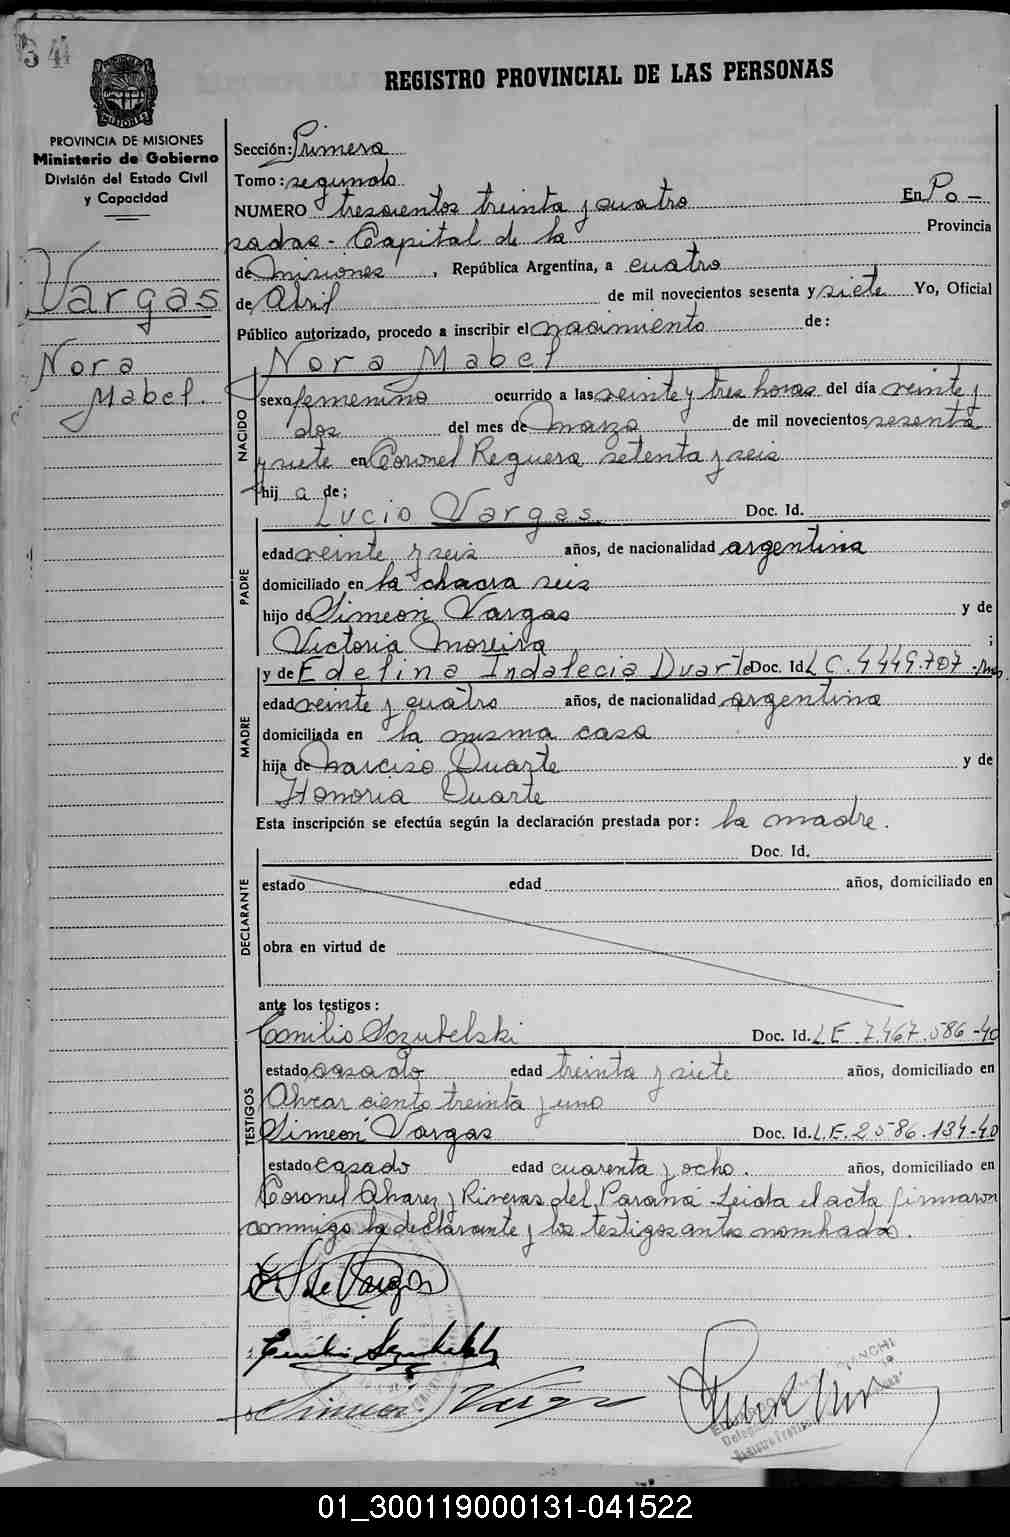 34
REGISTRO PROVINCIAL DE LAS PERSONAS
MISIONES
PROVINCIA DE MISIONES
Ministerio de Gobierno
División del Estado Civil
y Capacidad
Vargas
Nora
Mabel.
Sección: Primera
Tomo: segundo
NUMERO trescientos treinta y cuatro En Po-
sadas - Capital de la Provincia
de misiones, República Argentina, a cuatro
de Abril de mil novecientos sesenta y siete Yo, Oficial
Público autorizado, procedo a inscribir el nacimiento de:
Nora Mabel
NACIDO
sexo femenino ocurrido a las veinte y tres horas del día veinte y
dos del mes de marzo de mil novecientos sesenta
y siete en Coronel Reguera setenta y seis
hij a de;
Lucio Vargas Doc. Id.
PADRE
edad veinte y seis años, de nacionalidad argentina
domiciliado en la chacra seis
hijo de Simeón Vargas y de
Victoria Moreira ;
y de Edelina Indalecia Duarte Doc. Id. L C. 4449.707
MADRE
edad veinte y cuatro años, de nacionalidad argentina
domiciliada en la misma casa
hija de Narciso Duarte y de
Honoria Duarte
Esta inscripción se efectúa según la declaración prestada por: la madre.
Doc. Id.
DECLARANTE
estado edad años, domiciliado en
obra en virtud de
ante los testigos:
TESTIGOS
Emilio Doc. Id. L E 7.467.586-40
estado casado edad treinta y siete años, domiciliado en
Alvear ciento treinta y uno
Simeón Vargas Doc. Id. L.E. 2586.134-40
estado casado edad cuarenta y ocho. años, domiciliado en
Coronel Alvarez y Riveras del Paraná - Leida el acta firmaron
conmigo la declarante y los testigos antes nombrados.
de Vargas
Emilio
Simeón Vargas
01_300119000131-041522